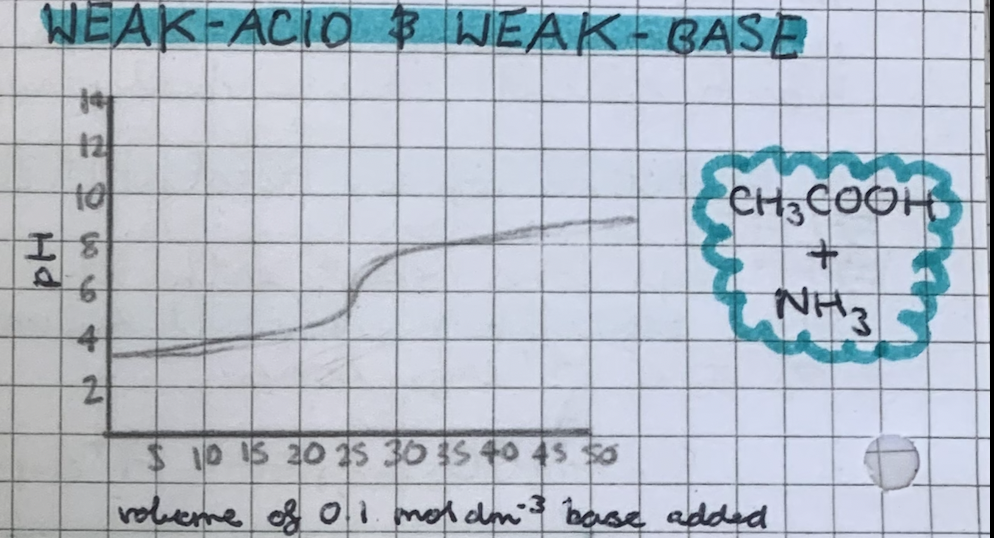 WEAK-ACID & WEAK-BASE
14
12
10
8
6
4
2
pH
5 10 15 20 25 30 35 40 45 50
volume of 0.1 mol dm-³ base added
CH₃COOH
+
NH₃